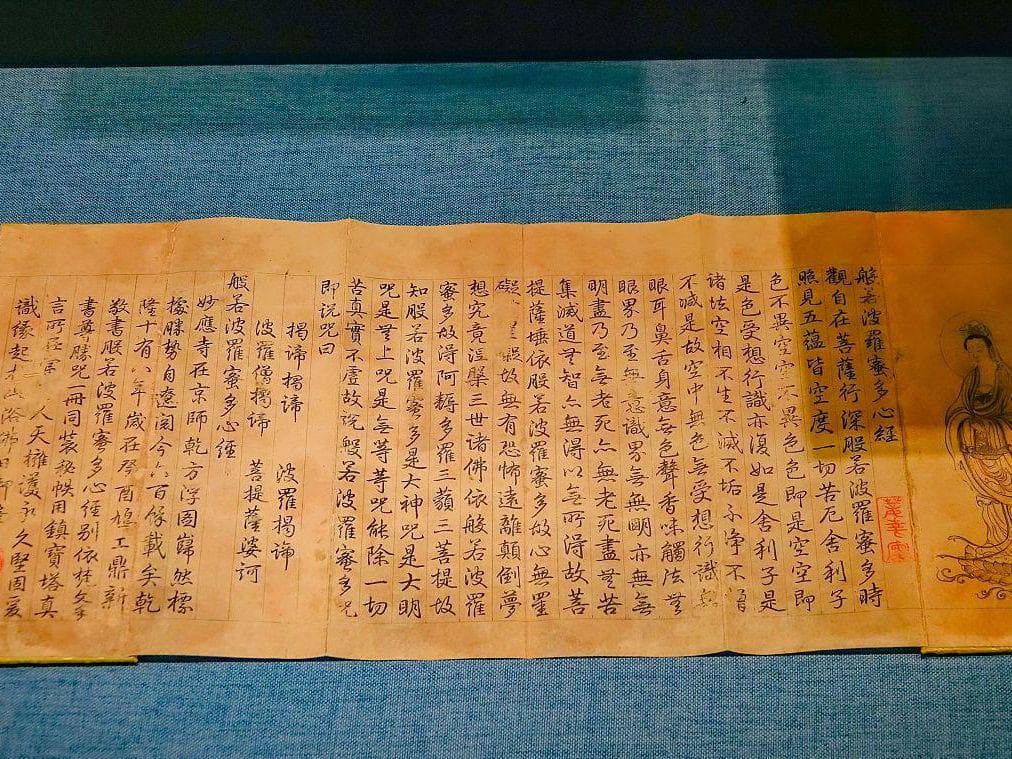 般若波羅蜜多心經
觀自在菩薩行深般若波羅蜜多時
照見五蘊皆空度一切苦厄舍利子
色不異空空不異色色即是空空即
是色受想行識亦復如是舍利子是
諸法空相不生不滅不垢不淨不增
不減是故空中無色無受想行識無
眼耳鼻舌身意無色聲香味觸法無
眼界乃至無意識界無無明亦無無
明盡乃至無老死亦無老死盡無苦
集滅道無智亦無得以無所得故菩
提薩埵依般若波羅蜜多故心無罣
礙罣礙故無有恐怖遠離顛倒夢
想究竟涅槃三世諸佛依般若波羅
蜜多故得阿耨多羅三藐三菩提故
知般若波羅蜜多是大神咒是大明
咒是無上咒是無等等咒能除一切
苦真實不虛故說般若波羅蜜多咒
即說咒曰
揭諦揭諦 波羅揭諦
波羅僧揭諦 菩提薩婆訶
般若波羅蜜多心經
妙應寺在京師乾方浮圖巋然標
勝勢自遼閱今六百餘載矣乾
隆十有八年歲在癸酉鳩工鼎新
敬書般若波羅蜜多心經別依梵文
書尊勝咒一冊同裝秘帙用鎮寶塔真
言所人天擁護永久堅固爰
識緣起佛日